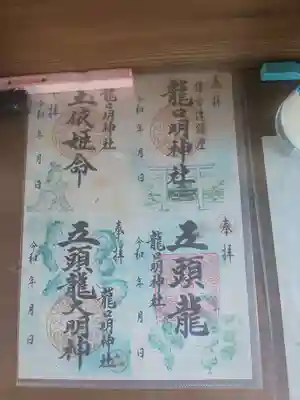 奉拝
鎌倉津鎮座
龍口明神社
令和 年 月 日
龍口明神社
玉依姫命
奉拝
令和 年 月 日
奉拝
五頭龍
龍口明神社
令和 年 月 日
奉拝
五頭龍大明神
龍口明神社
令和 年 月 日